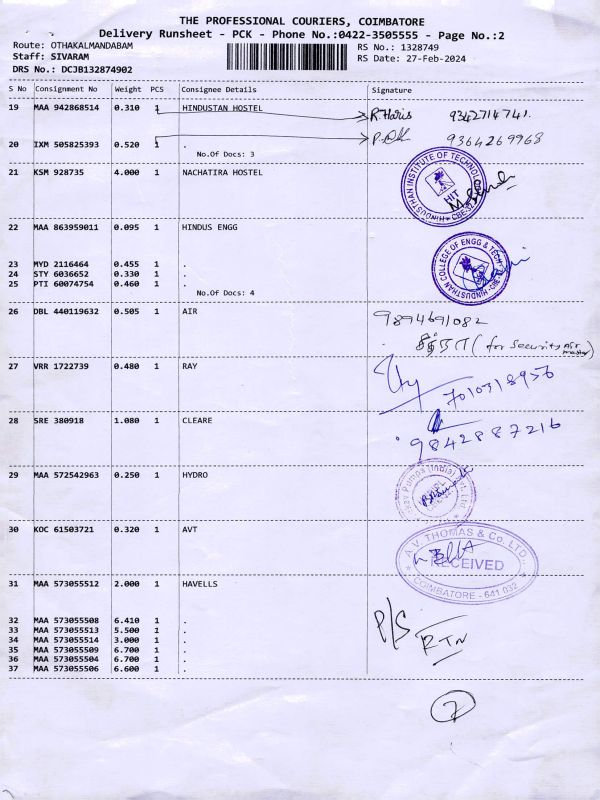 THE PROFESSIONAL COURIERS, COIMBATORE
Delivery Runsheet - PCK - Phone No.:0422-3505555 - Page No.:2
Route: OTHAKALMANDABAM
RS No.: 1328749
Staff: SIVARAM
RS Date: 27-Feb-2024
DRS No.: DCJB132874902
S No Consignment No Weight PCS Consignee Details Signature
19 MAA 942868514 0.310 1 HINDUSTAN HOSTEL R.Haris 9342714741.
20 IXM 505825393 0.520 1 . 9364269968
No.Of Docs: 3
21 KSM 928735 4.000 1 NACHATIRA HOSTEL
HINDUSTHAN INSTITUTE OF TECHNOLOGY
HIT
CBE-32
22 MAA 863959011 0.095 1 HINDUS ENGG
HINDUSTHAN COLLEGE OF ENGG & TECH
23 MYD 2116464 0.455 1 .
24 STY 6036652 0.330 1 .
25 PTI 60074754 0.460 1 .
No.Of Docs: 4
26 DBL 440119632 0.505 1 AIR 9894691082
(for Security Air
27 VRR 1722739 0.480 1 RAY
7010318956
28 SRE 380918 1.080 1 CLEARE
9842887216
29 MAA 572542963 0.250 1 HYDRO
Pumps (India) Pvt Ltd
30 KOC 61503721 0.320 1 AVT
A.V. THOMAS & Co. LTD.,
RECEIVED
COIMBATORE - 641 032
31 MAA 573055512 2.000 1 HAVELLS
32 MAA 573055508 6.410 1 .
33 MAA 573055513 5.500 1 .
34 MAA 573055514 3.000 1 .
35 MAA 573055509 6.700 1 .
36 MAA 573055504 6.700 1 .
37 MAA 573055506 6.600 1 .
P/S
RTN
7